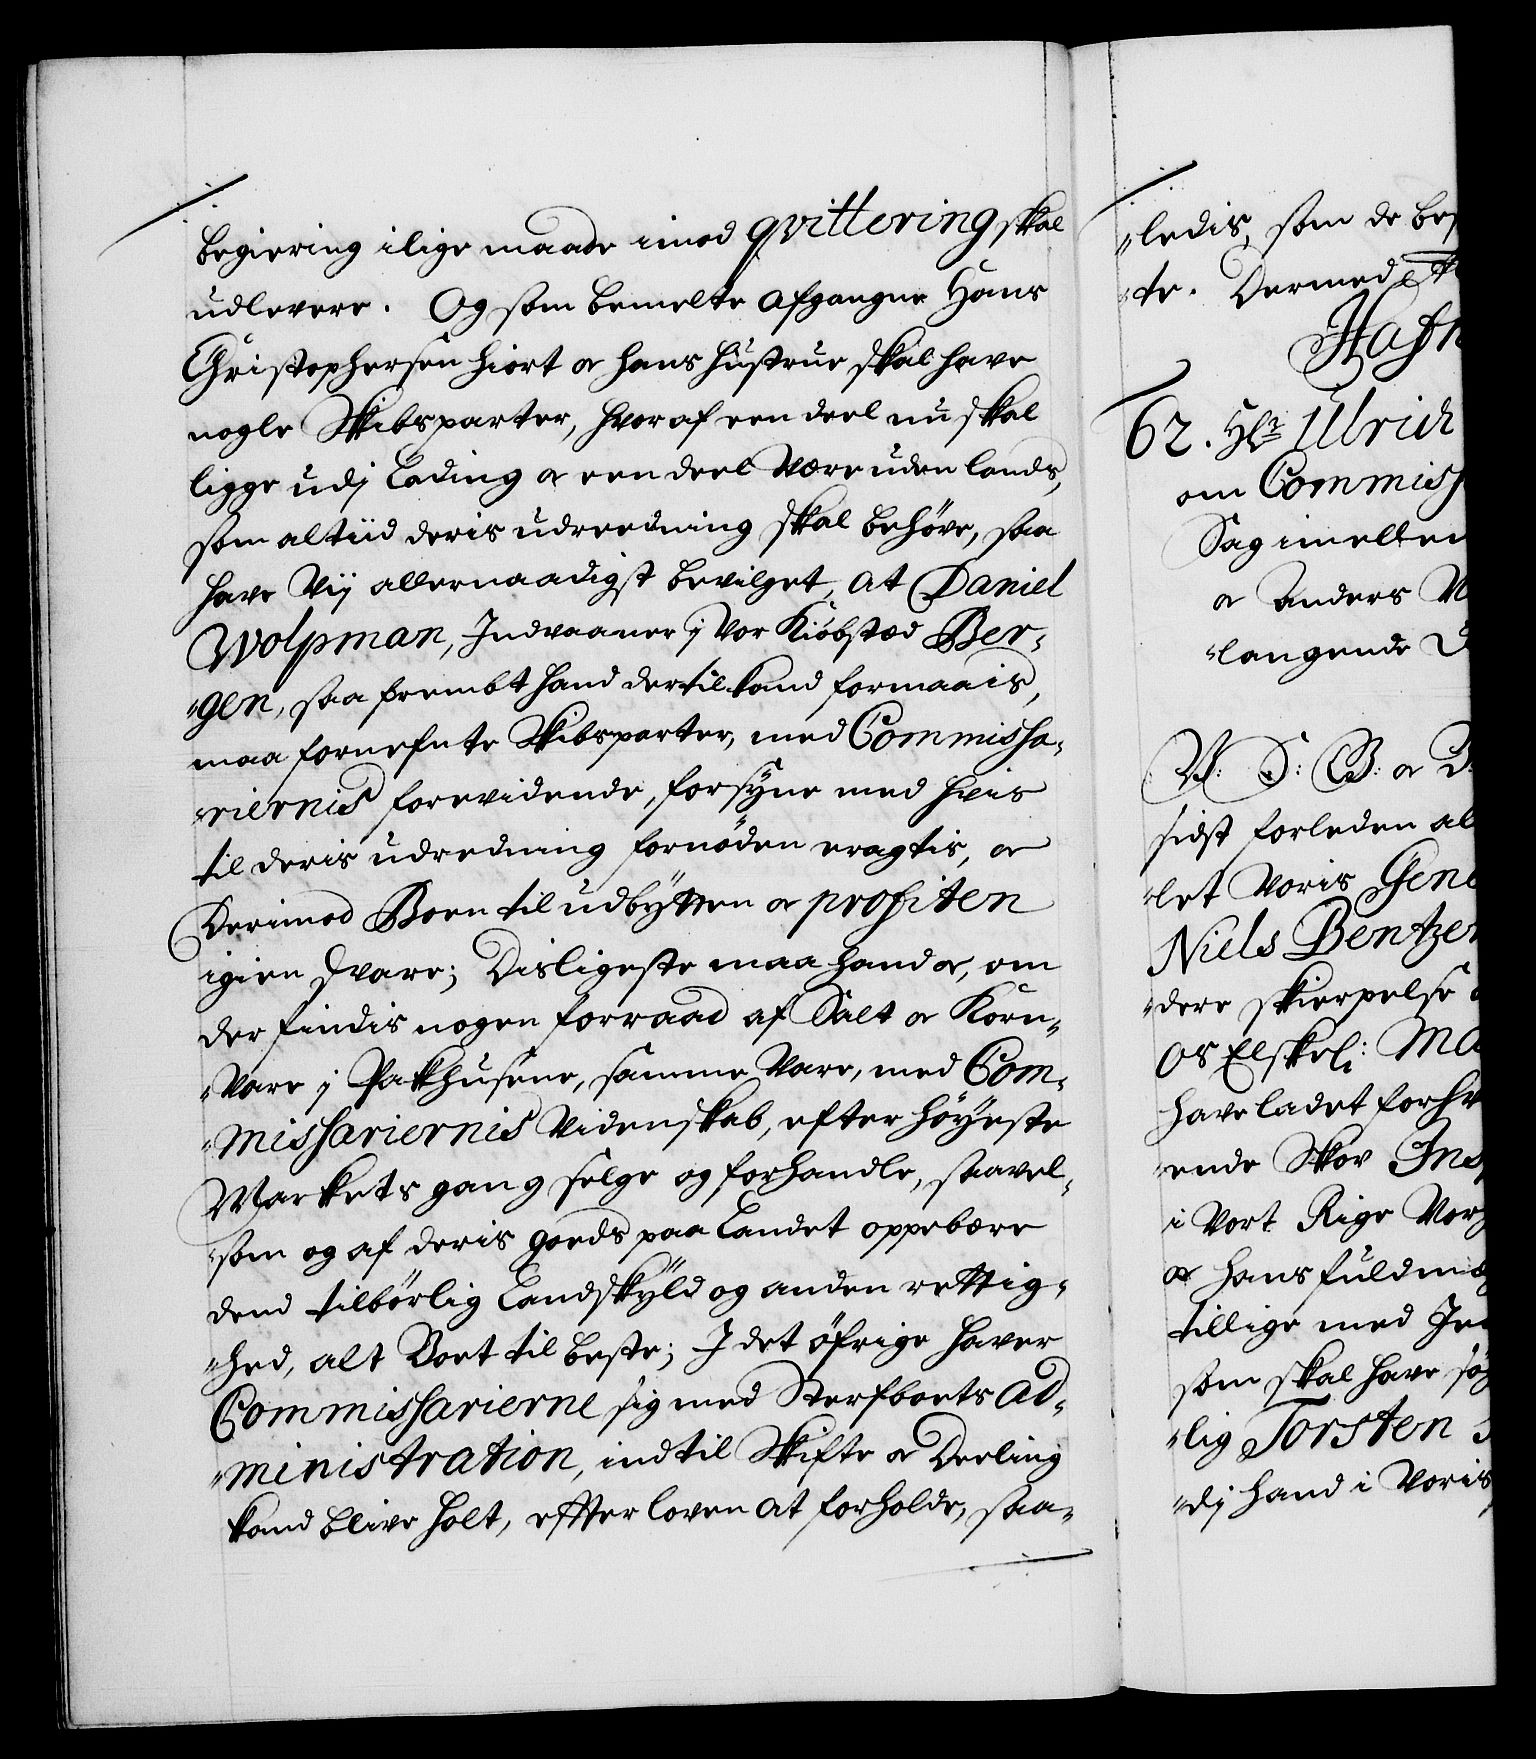 begiering ilige maade imod qvittering skal
udlevere. Og som bemelte afgangne Hans
Christophersen Hiort oc hans hustrue skal have
nogle Skibsparter, hvoraf een deel nu skal
ligge udj Lading oc een deel være uden lands,
som altiid deris udreedning skal behöve, saa
have Vij allernaadigst bevilget, at Daniel
Wolpman, Indvaaner j vor Kiöbstæd Ber-
gen, saa frembt hand dertil kand formaais,
maa fornefnte Skibsparter, med Commissa-
riernis forevidende, forsÿne med hvis
til deris udredning fornöden eragtis, oc
Derimod Boen til udbÿtten oc profiten
igien svare; Disligeste maa hand oc, om
der findis nogen forraad af Salt oc Korn-
Vare j Pakhusene, samme Vare, med Com-
missariernis Videnskab, efter höÿeste
Markets gang selge og forhandle, saavel-
som og af deris goeds paa Landet oppebære
dend tilbörlig Landskÿld og anden rettig-
hed, alt Boet til beste; I det öfrige haver
Commissarierne sig med Sterfboets Ad-
ministration, indtil Skifte oc Deeling
kand blive holt, efter loven at forholde, saa-
ledis, som de
te. Dermed
62. Hr. Ulrich
om
Sag imellem
oc Anders
langende
V: S: G: oc
sidst forleden
let Voris
Niels Bentzen
dere skierpelse
os Elskel:
have ladet
ende Skov
i Vort Rige
oc hans
tillige med
som skal have
lig Torsten
dj hand i Voris